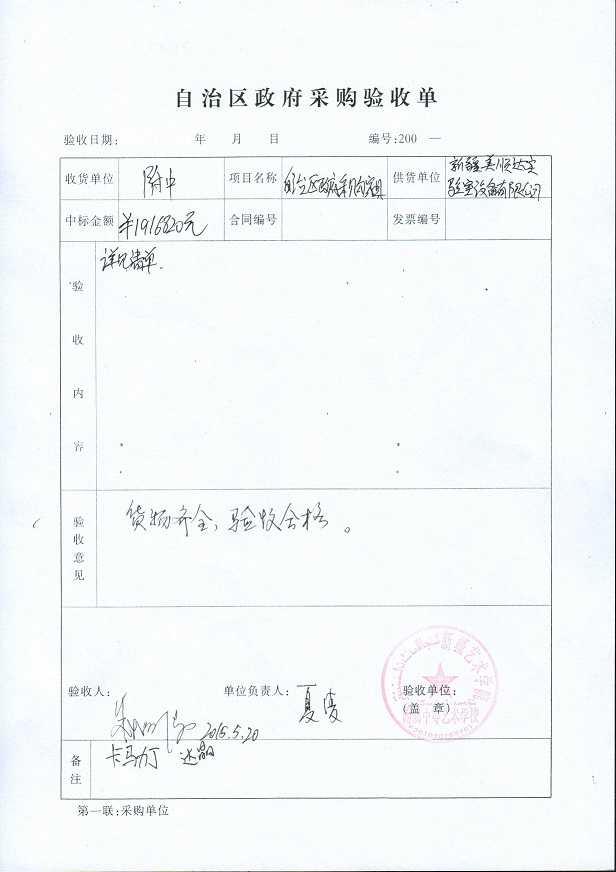 自治区政府采购验收单
验收日期： 年 月 日 编号:200 —
收货单位 附中 项目名称 自治区政府采购 供货单位 新疆美顺达实
验室设备有限公司
中标金额 ¥1916820元 合同编号 发票编号
验收内容 详见清单.
验收意见 货物齐全，验收合格。
新疆艺术学院
附属中等艺术学校
验收人: 单位负责人: 验收单位:
(盖 章)
2015.5.20
备注 卡马力丁
第一联:采购单位